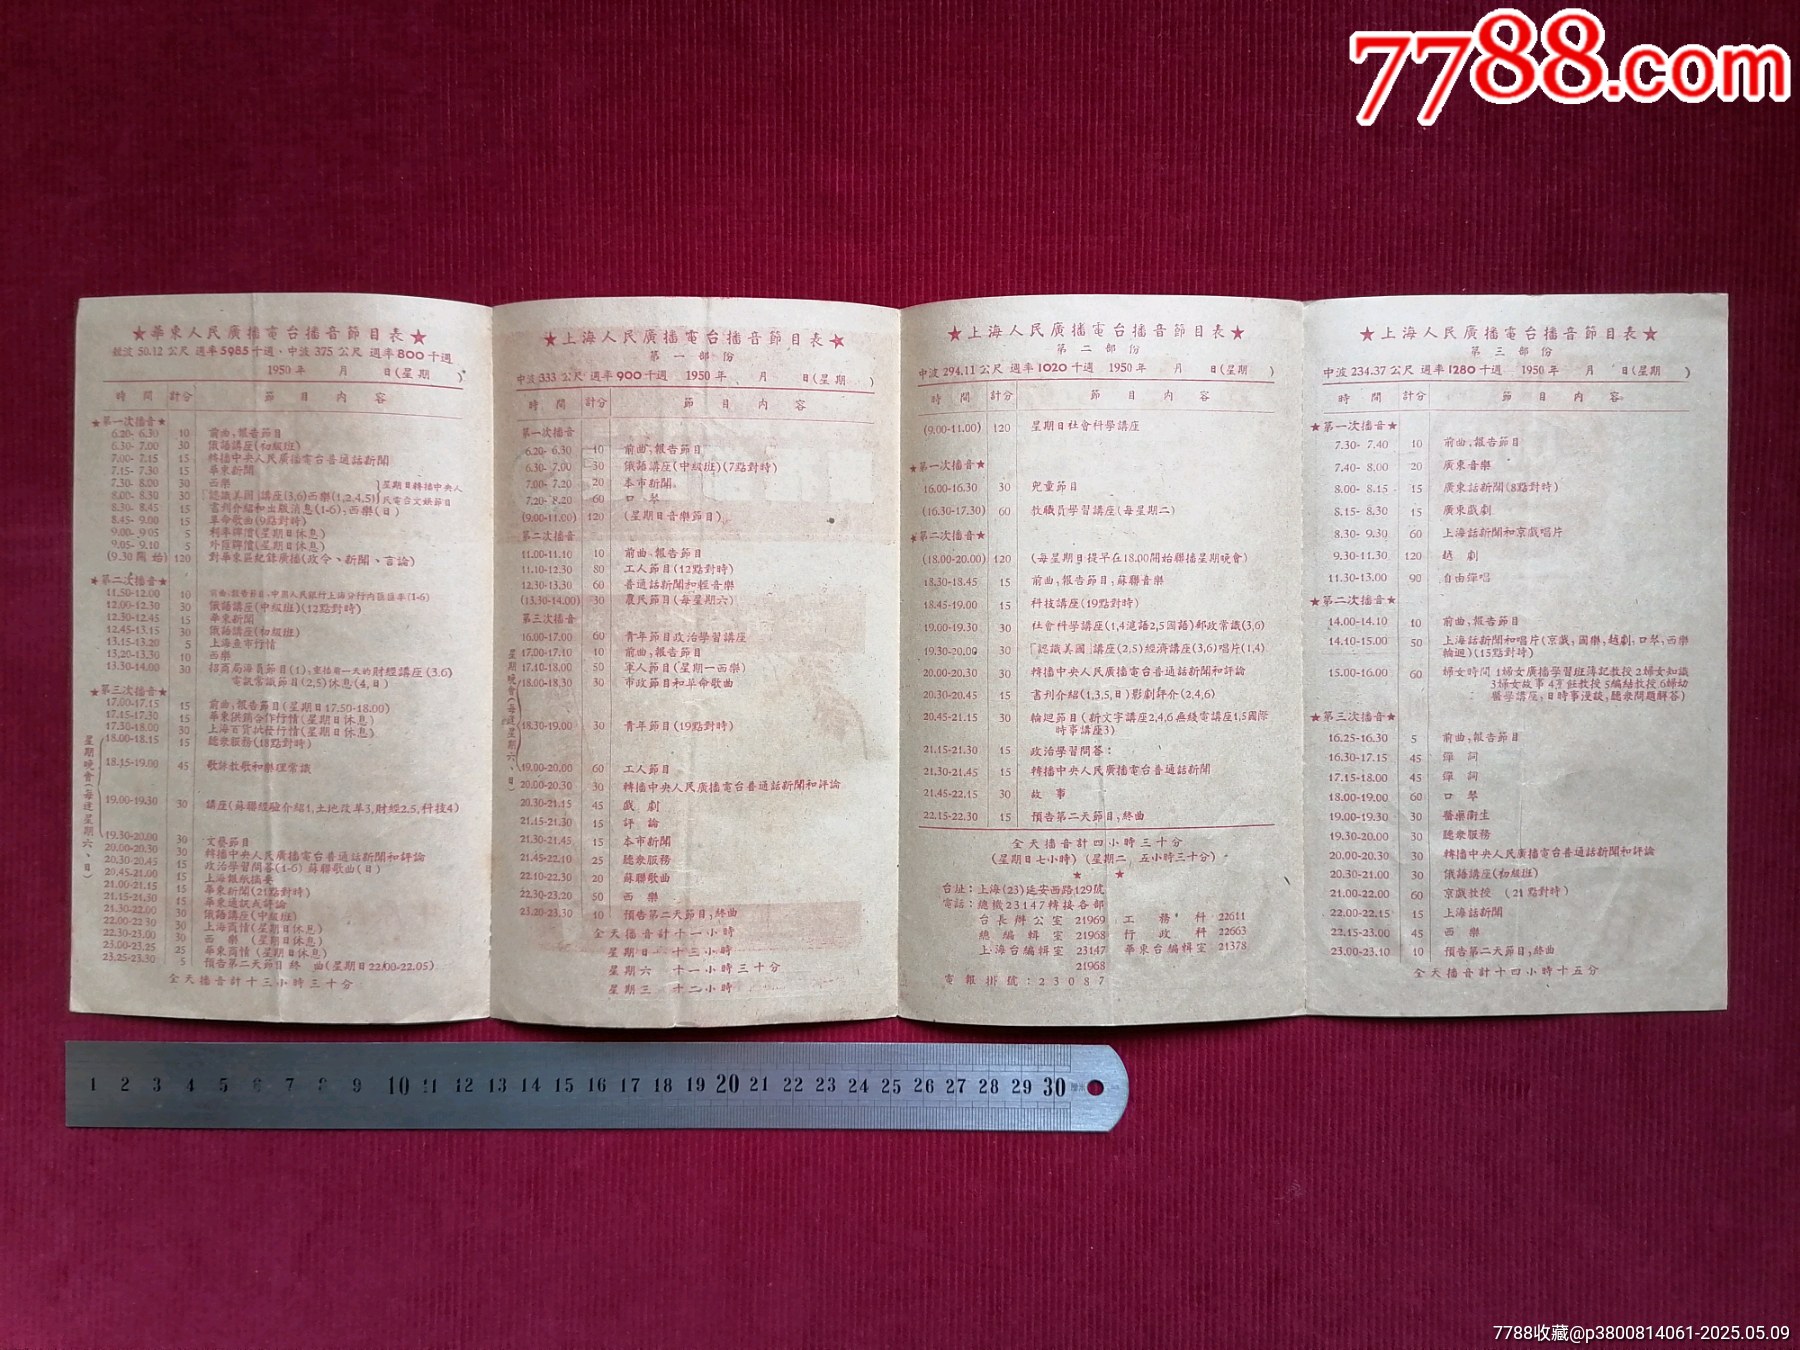 7788.com
★華東人民廣播電台播音節目表★
短波 50.12 公尺 週率 5985 千週·中波 375 公尺 週率 800 千週
1950 年 月 日(星期 )
時 間 計分 節 目 內 容
★第一次播音★
6.20- 6.30 10 前曲,報告節目
6.30- 7.00 30 俄語講座(初級班)
7.00- 7.15 15 轉播中央人民廣播電台普通話新聞
7.15- 7.30 15 華東新聞
7.30- 8.00 30 西樂
8.00- 8.30 30 「認識美國」講座(3,6)西樂(1,2,4,5)
星期日轉播中央人民電台文娛節目
8.30- 8.45 15 書刊介紹和出版消息(1-6);西樂(日)
8.45- 9.00 15 革命歌曲(9點對時)
9.00- 9.05 5 利率牌價(星期日休息)
9.05- 9.10 5 外匯牌價(星期日休息)
(9.30 開始) 120 對華東區紀錄廣播(政令、新聞、言論)
★第二次播音★
11.50-12.00 10 前曲,報告節目,中國人民銀行上海分行內匯匯率(1-6)
12.00-12.30 30 俄語講座(中級班)(12點對時)
12.30-12.45 15 華東新聞
12.45-13.15 30 俄語講座(初級班)
13.15-13.20 5 上海魚市行情
13.20-13.30 10 西樂
13.30-14.00 30 招商局海員節目(1);重播前一天的財經講座(3.6)
電訊常識節目(2,5)休息(4,日)
★第三次播音★
17.00-17.15 15 前曲,報告節目(星期日17.50-18.00)
17.15-17.30 15 華東供銷合作行情(星期日休息)
17.30-18.00 30 上海百貨批發行情(星期日休息)
星期晚會(每逢星期六、日)
18.00-18.15 15 聽衆服務(18點對時)
18.15-19.00 45 歌詠教歌和樂理常識
19.00-19.30 30 講座(蘇聯經驗介紹1,土地改革3,財經2.5,科技4)
19.30-20.00 30 文藝節目
20.00-20.30 30 轉播中央人民廣播電台普通話新聞和評論
20.30-20.45 15 政治學習問答(1-6) 蘇聯歌曲(日)
20.45-21.00 15 上海報紙摘要
21.00-21.15 15 華東新聞(21點對時)
21.15-21.30 15 華東通訊或評論
21.30-22.00 30 俄語講座(中級班)
22.00-22.30 30 上海商情(星期日休息)
22.30-23.00 30 西 樂 (星期日休息)
23.00-23.25 25 華東商情(星期日休息)
23.25-23.30 5 預告第二天節目 終 曲(星期日22.00-22.05)
全天播音計十三小時三十分
★上海人民廣播電台播音節目表★
第一部份
中波 333 公尺 週率 900 千週 1950 年 月 日(星期 )
時 間 計分 節 目 內 容
第一次播音
6.20- 6.30 10 前曲,報告節目
6.30- 7.00 30 俄語講座(中級班)(7點對時)
7.00- 7.20 20 本市新聞
7.20- 8.20 60 口 琴
(9.00-11.00) 120 (星期日音樂節目)
第二次播音
11.00-11.10 10 前曲,報告節目
11.10-12.30 80 工人節目(12點對時)
12.30-13.30 60 普通話新聞和輕音樂
(13.30-14.00) 30 農民節目(每星期六)
第三次播音
16.00-17.00 60 青年節目政治學習講座
17.00-17.10 10 前曲,報告節目
17.10-18.00 50 軍人節目(星期一西樂)
星期晚會(每逢星期六、日)
18.00-18.30 30 市政節目和革命歌曲
18.30-19.00 30 青年節目(19點對時)
19.00-20.00 60 工人節目
20.00-20.30 30 轉播中央人民廣播電台普通話新聞和評論
20.30-21.15 45 戲 劇
21.15-21.30 15 評 論
21.30-21.45 15 本市新聞
21.45-22.10 25 聽衆服務
22.10-22.30 20 蘇聯歌曲
22.30-23.20 50 西 樂
23.20-23.30 10 預告第二天節目,終曲
全天播音計十一小時
星期日 十三小時
星期六 十一小時三十分
星期三 十二小時
★上海人民廣播電台播音節目表★
第二部份
中波 294.11 公尺 週率 1020 千週 1950 年 月 日(星期 )
時 間 計分 節 目 內 容
(9.00-11.00) 120 星期日社會科學講座
★第一次播音★
16.00-16.30 30 兒童節目
(16.30-17.30) 60 教職員學習講座(每星期二)
★第二次播音★
(18.00-20.00) 120 (每星期日提早在18.00開始聯播星期晚會)
18.30-18.45 15 前曲,報告節目,蘇聯音樂
18.45-19.00 15 科技講座(19點對時)
19.00-19.30 30 社會科學講座(1,4滬語2,5國語)郵政常識(3,6)
19.30-20.00 30 「認識美國」講座(2,5)經濟講座(3,6)唱片(1,4)
20.00-20.30 30 轉播中央人民廣播電台普通話新聞和評論
20.30-20.45 15 書刊介紹(1,3,5,日)影劇評介(2,4,6)
20.45-21.15 30 輪迴節目(新文字講座2,4,6無綫電講座1,5國際
時事講座3)
21.15-21.30 15 政治學習問答:
21.30-21.45 15 轉播中央人民廣播電台普通話新聞
21.45-22.15 30 故 事
22.15-22.30 15 預告第二天節目,終曲
全天播音計四小時三十分
(星期日七小時)(星期二,五小時三十分)
★ ★
台址:上海(23)延安西路129號
電話:總機23147轉接各部
台長辦公室 21969 工 務 科 22611
總編輯室 21968 行 政 科 22663
上海台編輯室 23147 華東台編輯室 21378
21968
電報掛號:23087
★上海人民廣播電台播音節目表★
第三部份
中波 234.37 公尺 週率 1280 千週 1950 年 月 日(星期 )
時 間 計分 節 目 內 容
★第一次播音★
7.30- 7.40 10 前曲,報告節目
7.40- 8.00 20 廣東音樂
8.00- 8.15 15 廣東話新聞(8點對時)
8.15- 8.30 15 廣東戲劇
8.30- 9.30 60 上海話新聞和京戲唱片
9.30-11.30 120 越 劇
11.30-13.00 90 自由彈唱
★第二次播音★
14.00-14.10 10 前曲,報告節目
14.10-15.00 50 上海話新聞和唱片(京戲,國樂,越劇,口琴,西樂
輪迴)(15點對時)
15.00-16.00 60 婦女時間 1婦女廣播學習班簿記教授 2婦女知識
3婦女故事 4烹飪教授 5編結教授 6婦幼
醫學講座,日時事漫談,聽衆問題解答)
★第三次播音★
16.25-16.30 5 前曲,報告節目
16.30-17.15 45 彈 詞
17.15-18.00 45 彈 詞
18.00-19.00 60 口 琴
19.00-19.30 30 醫藥衛生
19.30-20.00 30 聽衆服務
20.00-20.30 30 轉播中央人民廣播電台普通話新聞和評論
20.30-21.00 30 俄語講座(初級班)
21.00-22.00 60 京戲教授 (21點對時)
22.00-22.15 15 上海話新聞
22.15-23.00 45 西 樂
23.00-23.10 10 預告第二天節目,終曲
全天播音計十四小時十五分
1 2 3 4 5 6 7 8 9 10 11 12 13 14 15 16 17 18 19 20 21 22 23 24 25 26 27 28 29 30
7788收藏@p3800814061-2025.05.09